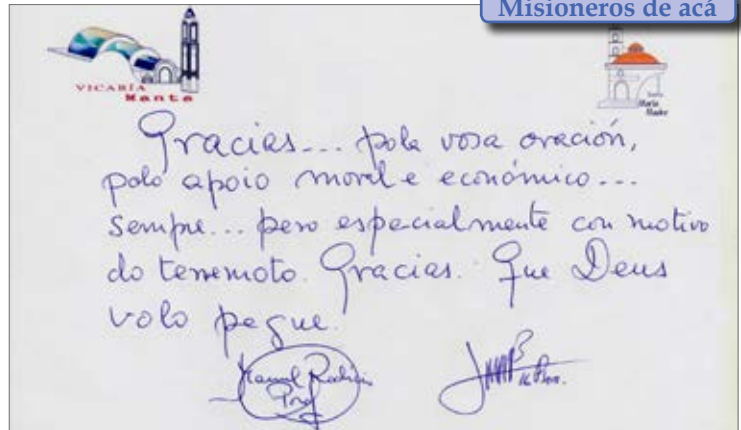 Misioneros de acá
VICARÍA
Manta
María
Madre
Gracias... pola vosa oración,
polo apoio moral e económico...
sempre... pero especialmente con motivo
do terremoto. Gracias. Que Deus
volo pague.
Manuel